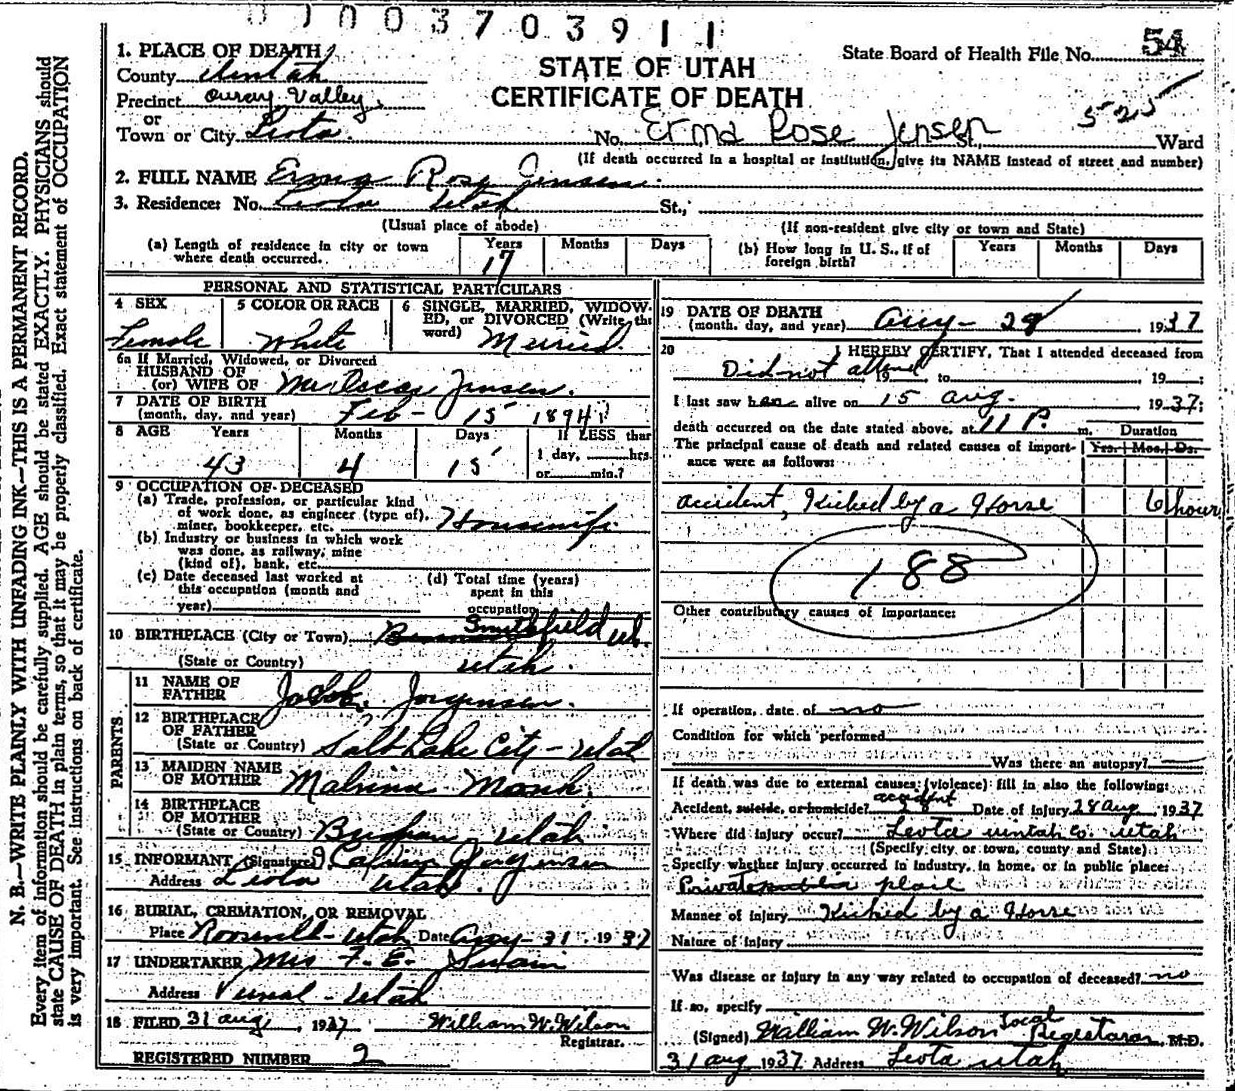 0 0 0 3 7 0 3 9 1 1
1. PLACE OF DEATH
County Uintah
Precinct Ouray Valley.
or
Town or City Leota.
STATE OF UTAH
CERTIFICATE OF DEATH
State Board of Health File No. 54
525
No. Erma Rose Jensen St., Ward
(If death occurred in a hospital or institution, give its NAME instead of street and number)
2. FULL NAME Erma Rose Jensen.
3. Residence: No. Leota Utah St.,
(Usual place of abode)
(If non-resident give city or town and State)
(a) Length of residence in city or town where death occurred. Years 17 Months Days
(b) How long in U. S., if of foreign birth? Years Months Days
PERSONAL AND STATISTICAL PARTICULARS
4 SEX Female
5 COLOR OR RACE White
6 SINGLE, MARRIED, WIDOWED, or DIVORCED (Write the word) Married.
6a If Married, Widowed, or Divorced
HUSBAND OF
(or) WIFE OF Mr Oscar Jensen.
7 DATE OF BIRTH
(month, day, and year) Feb - 15 1894
8 AGE Years 43 Months 4 Days 15 If LESS than 1 day, hrs. or min.?
9 OCCUPATION OF DECEASED
(a) Trade, profession, or particular kind of work done, as engineer (type of), miner, bookkeeper, etc. Housewife
(b) Industry or business in which work was done, as railway, mine (kind of), bank, etc.
(c) Date deceased last worked at this occupation (month and year)
(d) Total time (years) spent in this occupation
10 BIRTHPLACE (City or Town) Smithfield Ut.
(State or Country) Utah.
PARENTS
11 NAME OF FATHER Jorgensen.
12 BIRTHPLACE OF FATHER
(State or Country) Salt Lake City - Utah
13 MAIDEN NAME OF MOTHER Malvina
14 BIRTHPLACE OF MOTHER
(State or Country) Brigham, Utah
15 INFORMANT (Signature) Jorgensen
Address Leota Utah.
16 BURIAL, CREMATION, OR REMOVAL
Place Roosevelt - Utah Date Aug - 31. 1937
17 UNDERTAKER Mrs F. E. Swain
Address Vernal - Utah
18 FILED 31 aug, 1937 William W. Wilson
Registrar.
REGISTERED NUMBER 2
19 DATE OF DEATH
(month, day, and year) Aug - 28 1937
20 I HEREBY CERTIFY, That I attended deceased from
Did not attend 19 to 19
I last saw her alive on 15 aug. 1937;
death occurred on the date stated above, at 11 P. m. Duration
The principal cause of death and related causes of importance were as follows: Yrs. Mos. Ds.
accident, Kicked by a Horse 6 hour
188
Other contributory causes of importance:
If operation, date of no
Condition for which performed
Was there an autopsy?
If death was due to external causes (violence) fill in also the following:
Accident, suicide, or homicide? accident Date of injury 28 aug 1937
Where did injury occur? Leota uintah Co. utah
(Specify city or town, county and State)
Specify whether injury occurred in industry, in home, or in public place:
Private public place
Manner of injury Kicked by a Horse
Nature of injury
Was disease or injury in any way related to occupation of deceased? no
If so, specify
(Signed) William W. Wilson Local Registrar, M.D.
31 aug 1937 Address Leota utah
N. B.—WRITE PLAINLY WITH UNFADING INK—THIS IS A PERMANENT RECORD.
Every item of information should be carefully supplied. AGE should be stated EXACTLY. PHYSICIANS should
state CAUSE OF DEATH in plain terms, so that it may be properly classified. Exact statement of OCCUPATION
is very important. See instructions on back of certificate.